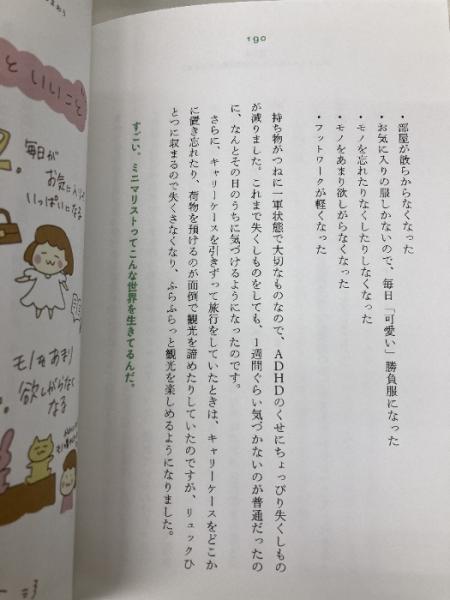 190
・部屋が散らからなくなった
・お気に入りの服しかないので、毎日「可愛い」勝負服になった
・モノを忘れたりなくしたりしなくなった
・モノをあまり欲しがらなくなった
・フットワークが軽くなった
持ち物がつねに一軍状態で大切なものなので、ADHDのくせにちょっぴり失くしもの
が減りました。これまで失くしものをしても、1週間ぐらい気づかないのが普通だったの
に、なんとその日のうちに気づけるようになったのです。
さらに、キャリーケースを引きずって旅行をしていたときは、キャリーケースをどこか
に置き忘れたり、荷物を預けるのが面倒で観光を諦めたりしていたのですが、リュックひ
とつに収まるので失くさなくなり、ふらふらっと観光を楽しめるようになりました。
すごい。ミニマリストってこんな世界を生きてるんだ。
といいこと
2.
毎日が
お気に入りで
いっぱいになる
モノをあまり
欲しがらなく
なる